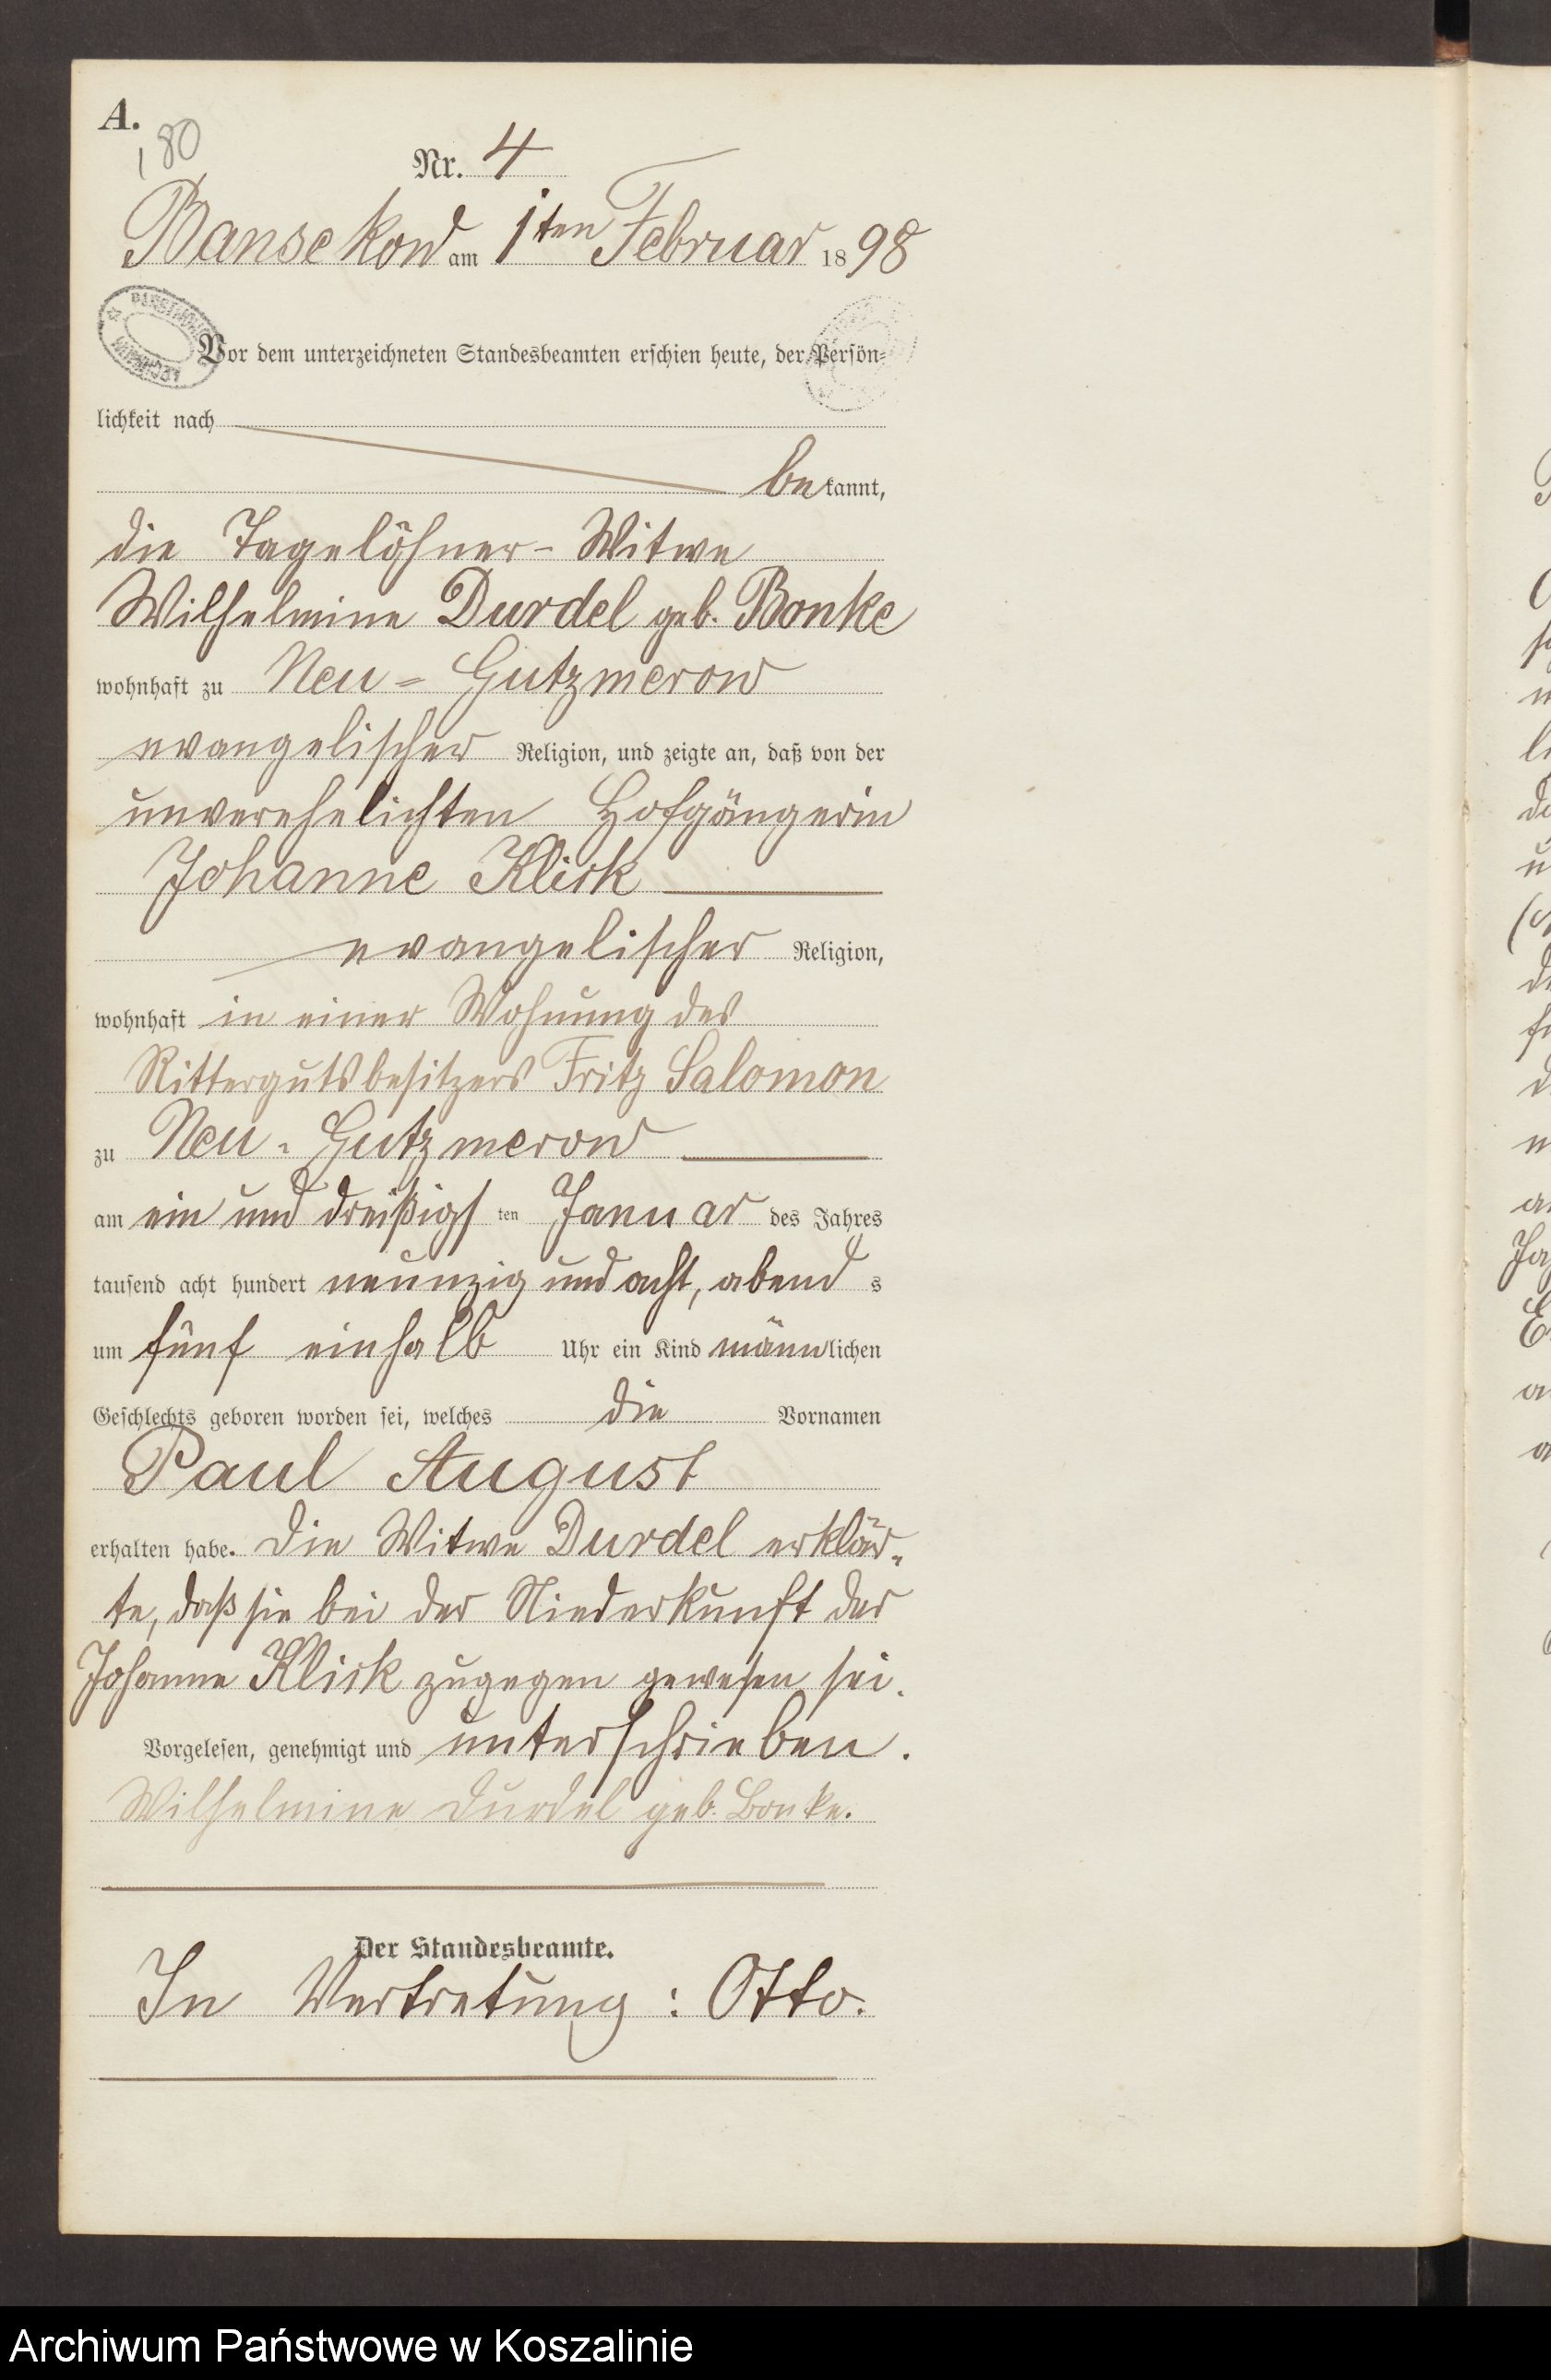 A.
180
Nr. 4
Bansekow am 1ten Februar 1898
Vor dem unterzeichneten Standesbeamten erschien heute, der Persön-
lichkeit nach
bekannt,
die Tagelöhner-Witwe
Wilhelmine Durdel geb. Bonke
wohnhaft zu Neu-Gutzmerow
evangelischer Religion, und zeigte an, daß von der
unverehelichten Hofgängerin
Johanne Klick
evangelischer Religion,
wohnhaft in einer Wohnung des
Rittergutsbesitzers Fritz Salomon
zu Neu-Gutzmerow
am ein und dreißigsten Januar des Jahres
tausend acht hundert neunzig und acht, abends
um fünf einhalb Uhr ein Kind männlichen
Geschlechts geboren worden sei, welches die Vornamen
Paul August
erhalten habe. Die Witwe Durdel erklär-
te, daß sie bei der Niederkunft der
Johanne Klick zugegen gewesen sei.
Vorgelesen, genehmigt und unterschrieben.
Wilhelmine Durdel geb. Bonke.
Der Standesbeamte.
In Vertretung: Otto.
Archiwum Państwowe w Koszalinie